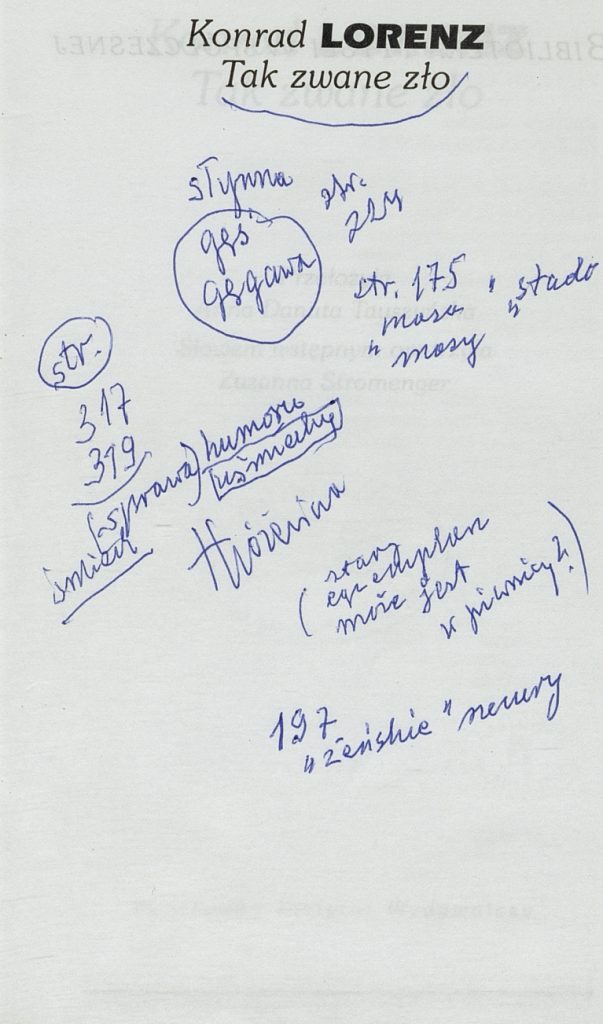 Konrad LORENZ
Tak zwane zło
słynna
gęś
gęgawa
str.
224
str. 175
"masa"
"masy
"stado
str.
317
319
(sprawa) humoru
uśmiechu
śmiech
(stary
egzemplarz
może jest
w piwnicy?)
197
"żeńskie"
Zuzanna Stromenger